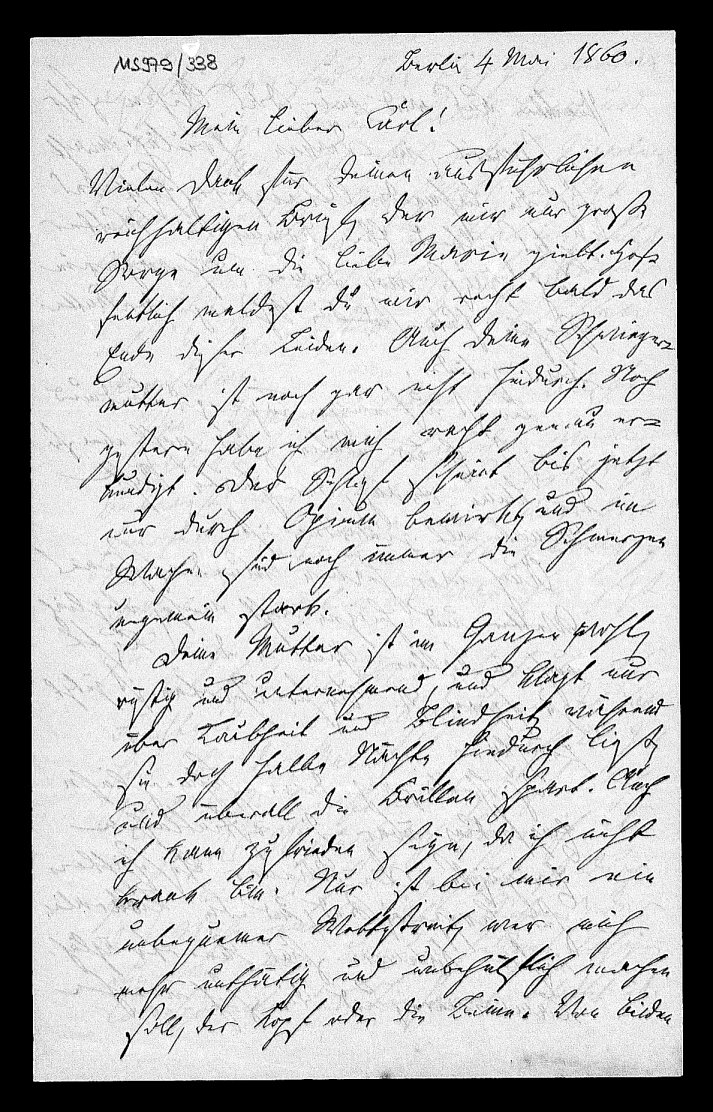 MS979/338
Berlin 4 Mai 1860.
Mein lieber Carl!
Vielen Dank für deinen ausführlichen
reichhaltigen Brief, der mir nur große
Sorge um die liebe Marie giebt. Hof-
fentlich meldest du mir recht bald das
Ende dieser Leiden. Auch deine Schwieger-
mutter ist noch gar nicht hindurch. Noch
gestern habe ich mich recht genau er-
kundigt. Der Schlaf scheint bis jetzt
nur durch Opium bewirkt, und im
Wachen sind noch immer die Schmerzen
ungemein stark.
Deine Mutter ist im Ganzen wohl,
rüstig und unternehmend, und klagt nur
über Taubheit und Blindheit, während
sie doch halbe Nächte hindurch liest,
und überall die Brillen spart. Auch
ich kann zufrieden seyn, da ich nicht
krank bin. Nur ist bei mir ein
unbequemer Wettstreit, wer mich
mehr unthätig und unbehülflich machen
soll, der Kopf oder die Beine. Von beiden